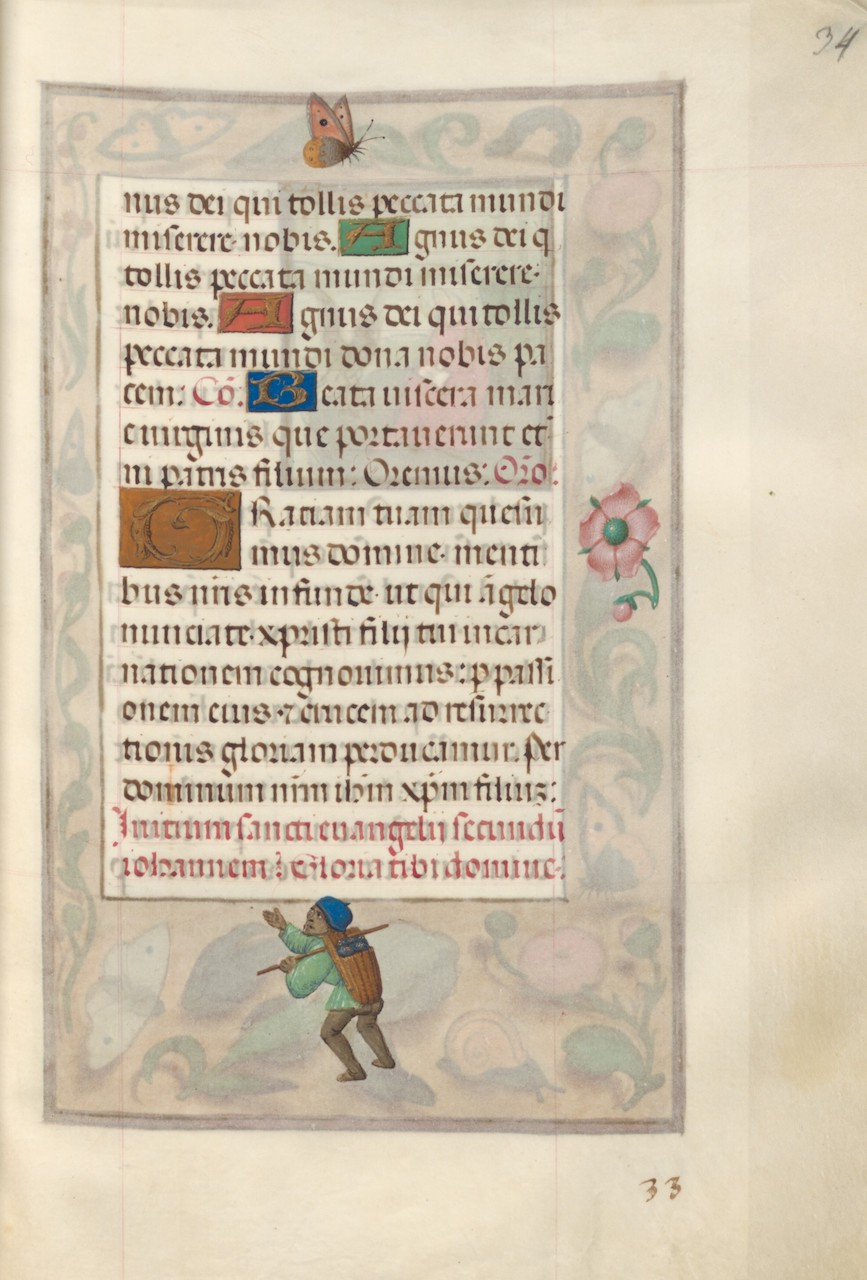 34
nus dei qui tollis peccata mundi
miserere nobis. Agnus dei q
tollis peccata mundi miserere
nobis. Agnus dei qui tollis
peccata mundi dona nobis pa
cem: Cō. Beata uiscera mari
e uirginis que portauerunt et̄
ni patris filium: Oremus: Or̄o:
GRatiam tuam quesu
mus domine menti
bus nr̄is infunde ut qui āgelo
nunciate xpristi filij tui incar
nationem cognouimus: p passi
onem eius ⁊ crucem ad resurrec
tionis gloriam perducamur. Per
dominum nr̄m ih̄m xp̄m filiuȝ:
Initium sancti euangelij secundū
iohannem: Gloria tibi domine
33